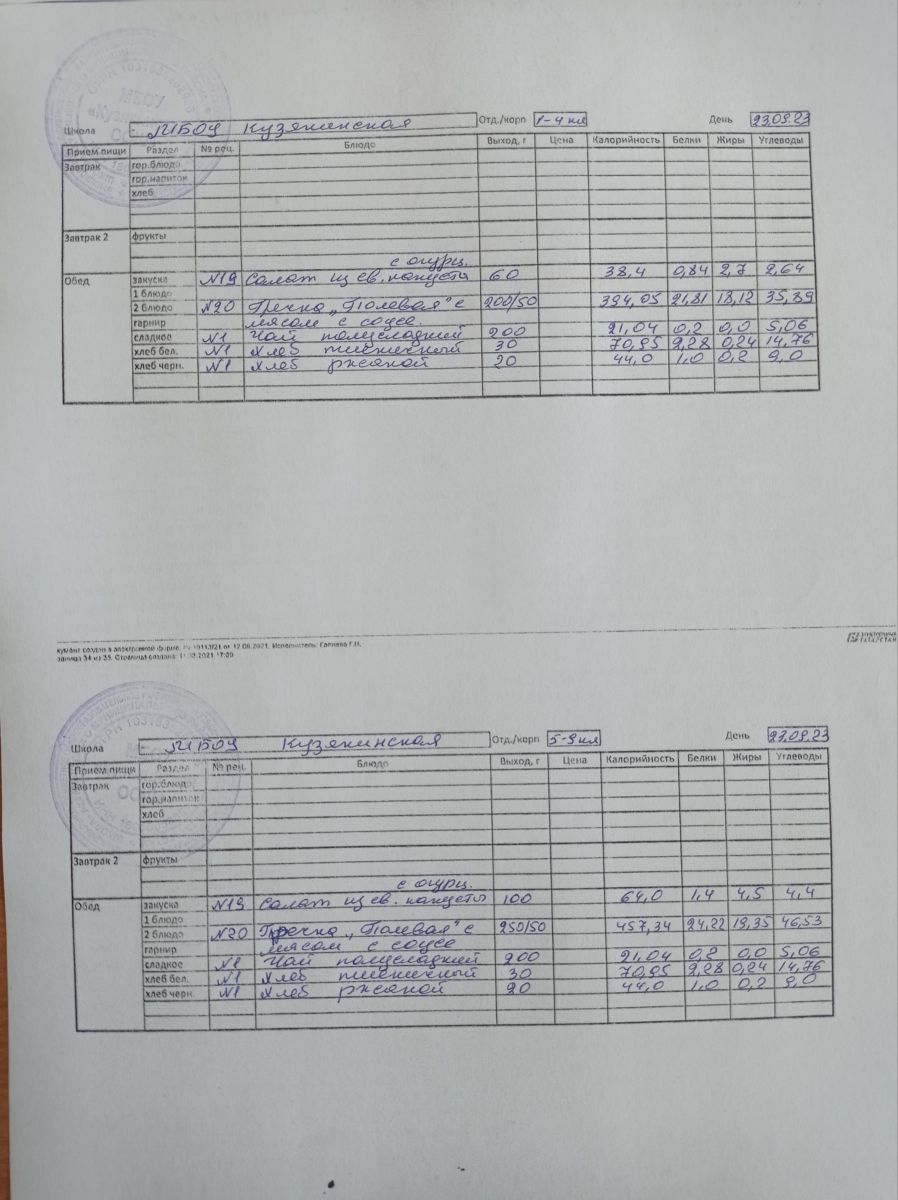 Школа МБОУ Кузякинская Отд./корп 1-4 кл День 23.09.23
Прием пищи Раздел № рец. Блюдо Выход, г Цена Калорийность Белки Жиры Углеводы
Завтрак гор.блюдо
гор.напиток
хлеб
Завтрак 2 фрукты
с огурц.
Обед закуска №19 Салат из св. капусты 60 38,4 0,84 2,7 2,64
1 блюдо
2 блюдо №20 Гречка „Полевая" с 200/50 394,05 21,81 18,12 35,89
гарнир мясом с соусе
сладкое №1 Чай полусладкий 200 21,04 0,2 0,0 5,06
хлеб бел. №1 Хлеб пшеничный 30 70,95 2,28 0,24 14,76
хлеб черн. №1 Хлеб ржаной 20 44,0 1,0 0,2 9,0
Школа МБОУ Кузякинская Отд./корп 5-9 кл День 23.09.23
Прием пищи Раздел № рец. Блюдо Выход, г Цена Калорийность Белки Жиры Углеводы
Завтрак гор.блюдо
гор.напиток
хлеб
Завтрак 2 фрукты
с огурц.
Обед закуска №19 Салат из св. капусты 100 64,0 1,4 4,5 4,4
1 блюдо
2 блюдо №20 Гречка „Полевая" с 250/50 457,34 24,22 19,35 46,53
гарнир мясом с соусе
сладкое №1 Чай полусладкий 200 21,04 0,2 0,0 5,06
хлеб бел. №1 Хлеб пшеничный 30 70,95 2,28 0,24 14,76
хлеб черн. №1 Хлеб ржаной 20 44,0 1,0 0,2 9,0